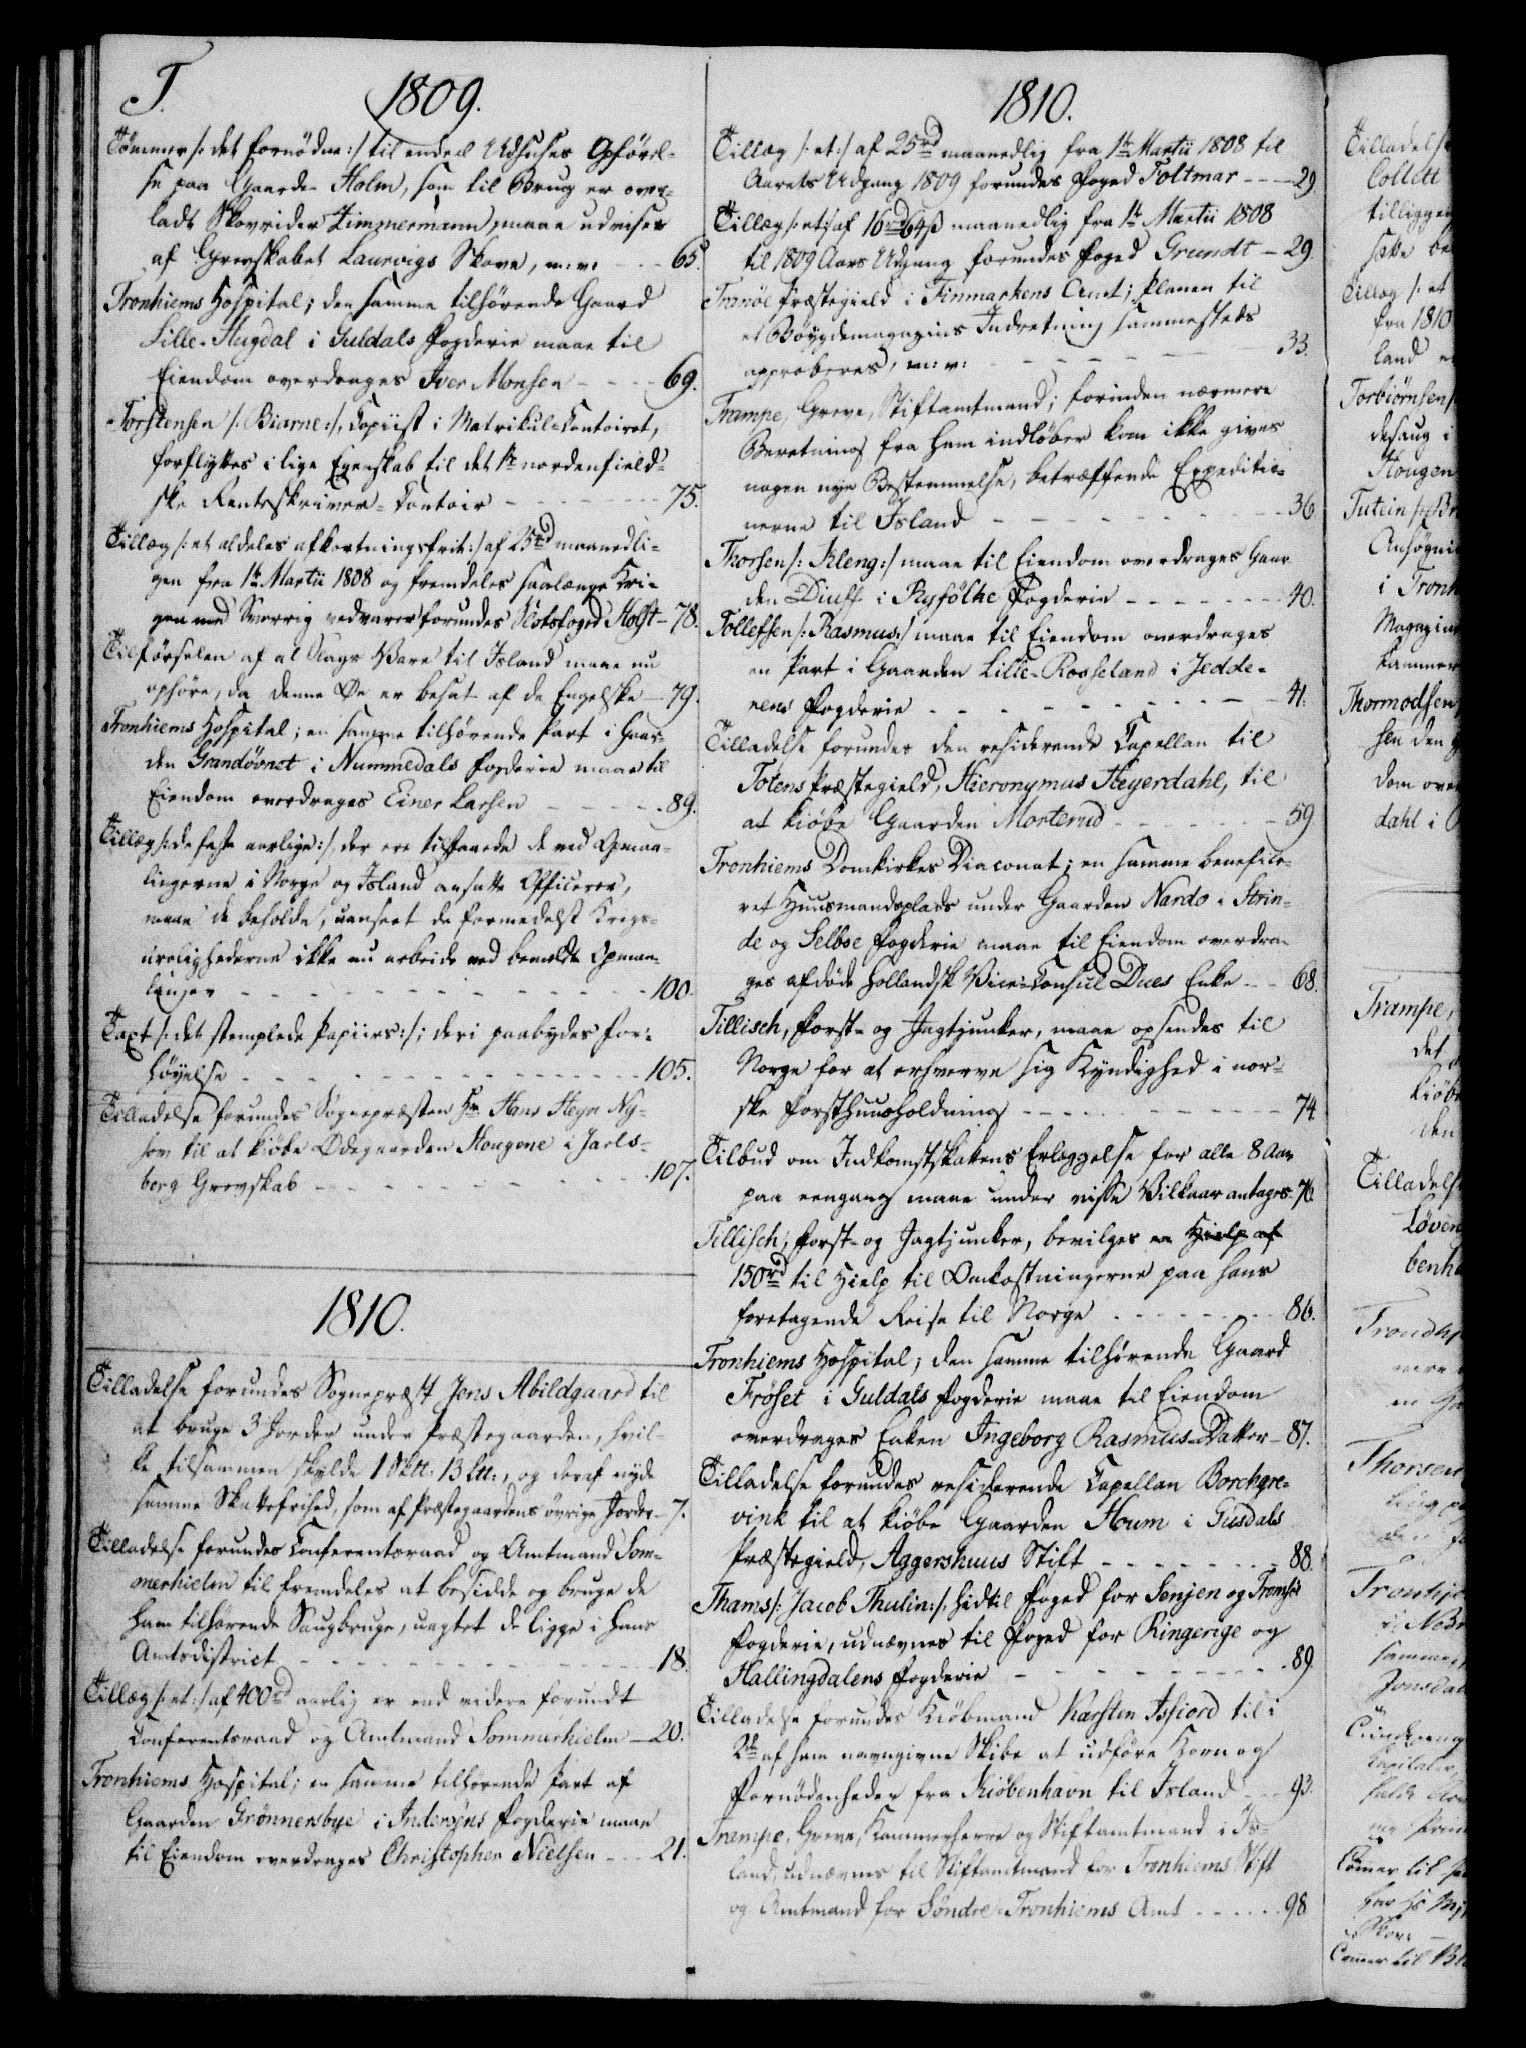 T.
1809.
Tömmer /: det fornödne :/ til endeel Udhuses Opförel-
se paa Gaarde Holm, som til Brug er over-
ladt Skovrider Zimmermann, maae udvises
af Grevskabet Laurvigs Skove, m: v: - - 65.
Tronhiems Hospital; den samme tilhörende Gaard
Lille-Hugdal i Guldals Fogderie maae til
Eiendom overdrages Iver Monsen - - - - 69.
Torstensen /: Biarne :/, Copiist i Matrikul-Contoiret,
forflyttes i lige Egenskab til det 1te nordenfield-
ske Renteskriver-Contoir - - - - - - 75.
Tillæg /: et aldeles afkortningsfrit :/ af 25rd maanedli-
gen fra 1te Martii 1808 og fremdeles saalænge Kri-
gen med Sverrig vedvarer forundes Slotsfoged Holst - 78.
Tilförselen af al Slags Vare til Island maae nu
ophöre, da denne Öe er besat af de Engelske - 79.
Tronhiems Hospital; en samme tilhörende Part i Gaar-
den Grandövnet i Nummedals Fogderie maae til
Eiendom overdrages Einer Larsen - - - - - 89.
Tillæg /: de faste aarlige :/, der ere tilstaaede de ved Opmaa-
lingerne i Norge og Island ansatte Officerer,
maae de beholde, uanseet de formedelst Krigs-
urolighederne ikke nu arbeide ved bemeldte Opmaa-
linger - - - - - - - - - - - 100.
Taxt /: det stemplede Papiirs :/; deri paabydes For-
höyelse - - - - - - - - - - - 105.
Tilladelse forundes Sognepræsten Hr. Hans Heyn Ny-
som til at kiöbe Ödegaarden Hougene i Jarls-
berg Grevskab - - - - - - - - - 107.
1810.
Tilladelse forundes Sognepræst Jens Abildgaard til
at bruge 3 Jorder under Præstegaarden, hvil-
ke tilsammen skylde 1 Sktt: 13 Ltt:, og deraf nyde
samme Skattefrihed, som af Præstegaardens övrige Jorder - 7.
Tilladelse forundes Conferentsraad og Amtmand Som-
merhielm til fremdeles at besidde og bruge de
ham tilhörende Saugbruge, uagtet de ligge i hans
Amtsdistrict - - - - - - - - - - 18.
Tillæg /: et :/ af 400rd aarlig er end videre forundt
Conferentsraad og Amtmand Sommerhielm - 20.
Tronhiems Hospital; en samme tilhörende Part af
Gaarden Grönnersbye i Inderöens Fogderie maae
til Eiendom overdrages Christopher Nielsen - - - 21.
1810.
Tillæg /: et :/ af 25rd maanedlig fra 1te Martii 1808 til
Aarets Udgang 1809 forundes Foged Foltmar - - - 29
Tillæg /: et :/ af 16rd 64ß maanedlig fra 1te Martii 1808
til 1809 Aars Udgang forundes Foged Grundt - 29.
Tranöe Præstegield i Finmarkens Amt; Planen til
et Böygdemagazins Indretning sammesteds
approberes, m: v: - - - - - - - 33.
Trampe, Greve, Stiftamtmand; forinden nærmere
Beretning fra ham indlöber kom ikke gives
nogen nye Bestemmelse, betræffende Expeditio-
nerne til Island - - - - - - - - 36
Thorsen /: Kleng :/ maae til Eiendom overdrages Gaar-
den Diuss i Ryfölke Fogderie - - - - - 40.
Tollefsen /: Rasmus :/ maae til Eiendom overdrages
en Part i Gaarden Lille-Rosseland i Jedde-
rens Fogderie - - - - - - - - - 41.
Tilladelse forundes den residerende Capellan til
Totens Præstegield, Hieronymus Heyerdahl, til
at kiöbe Gaarden Morterud - - - - - - 59
Tronhiems Domkirkes Diaconat; en samme benefice-
ret Huusmandsplads under Gaarden Nardo i Strin-
de og Selboe Fogderie maae til Eiendom overdra-
ges afdöde hollandsk Vice-Consul Dues Enke - - 68.
Tillisch, Forst- og Jagtjunker, maae opsendes til
Norge for at erhverve sig Kyndighed i nor-
ske Forsthuusholdning - - - - - - - - 74
Tilbud om Indkomstskattens Erlæggelse for alle 8 Aar
paa eengang maae under visse Vilkaar antages 76.
Tillisch, Forst- og Jagtjunker, bevilges en Hielp af
150rd til Hielp til Omkostningerne paa hans
foretagende Reise til Norge - - - - - - 86.
Tronhiems Hospital; den samme tilhörende Gaard
Fröset i Guldals Fogderie maae til Eiendom
overdrages Enken Ingeborg Rasmus-Datter - 87.
Tilladelse forundes residerende Capellan Borchgre-
vink til at kiöbe Gaarden Houm i Gusdals
Præstegield, Aggershuus Stift - - - - - 88.
Thams /: Jacob Thulin :/. hidtil Foged for Senjen og Tromsöe
Fogderie, udnævnes til Foged for Ringerige og
Hallingdalens Fogderie - - - - - - - 89.
Tilladelse forundes Kiöbmand Karsten Isfiord til i
2de af ham navngivne Skibe at udföre Korn og
Fornödenheder fra Kiöbenhavn til Island - - - 93.
Trampe, Greve, Kammerherre og Stiftamtmand i Is-
land, udnævnes til Stiftamtmand for Tronhiems Stift
og Amtmand for Söndre-Tronhiems Amt - - - - - 98
Tilladelse
Collett
tilliggen
Tillæg /: et
fra 1810
land
Torbiörnsen
desaug i
Hougen
Tutein /: Br
Ansögni
i Tronh
Magazin
Kammer
Thormodsen
sen den
dom over
dahl i
Trampe,
det
kiöbe
den
Tilladelse
Löven
benha
Trondhj
Thorsen
Tronhje
i Nor
samme
Jonsdat
Capitaler
Tömer til